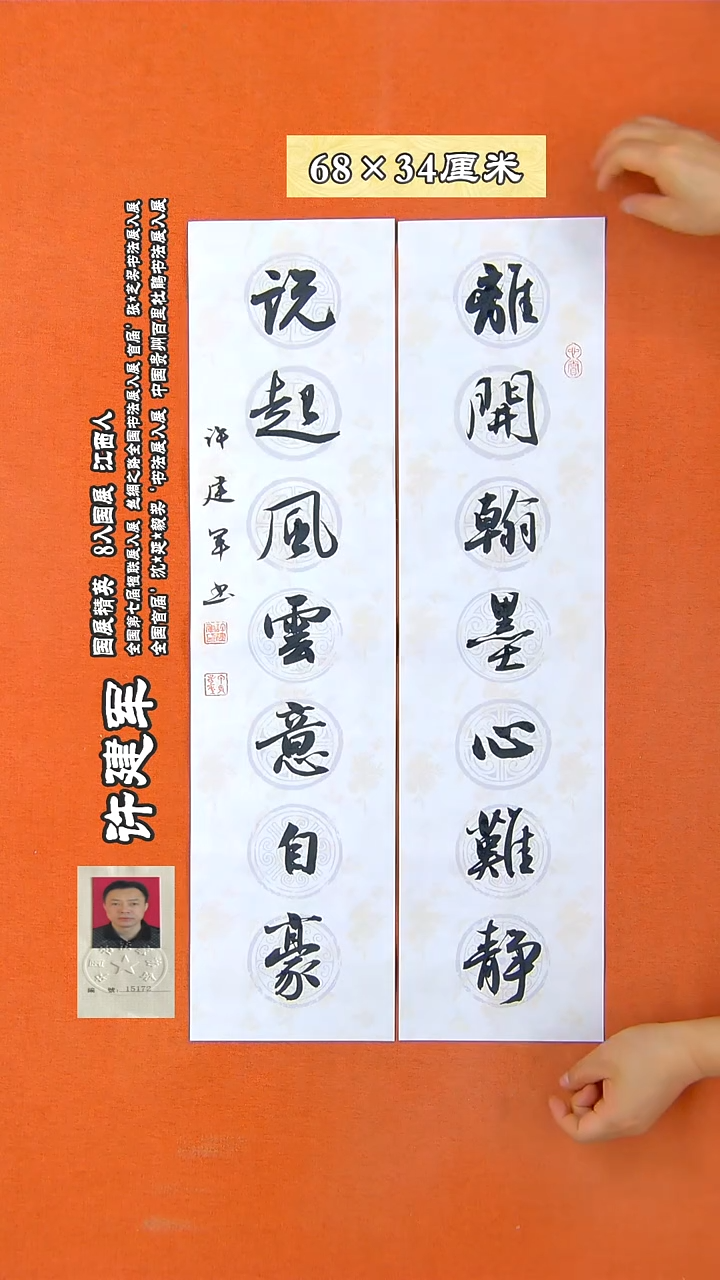 68×34厘米
離開翰墨心難静
说起風雲意自豪
许建军书
国展精英 8入国展 江西人
全国第七届楹联展入展 丝绸之路全国书法展入展 首届'张*芝奖书法展入展
全国首届'沈*延*毅奖'书法展入展 中国贵州百里杜鹃书法展入展
许建军
15172